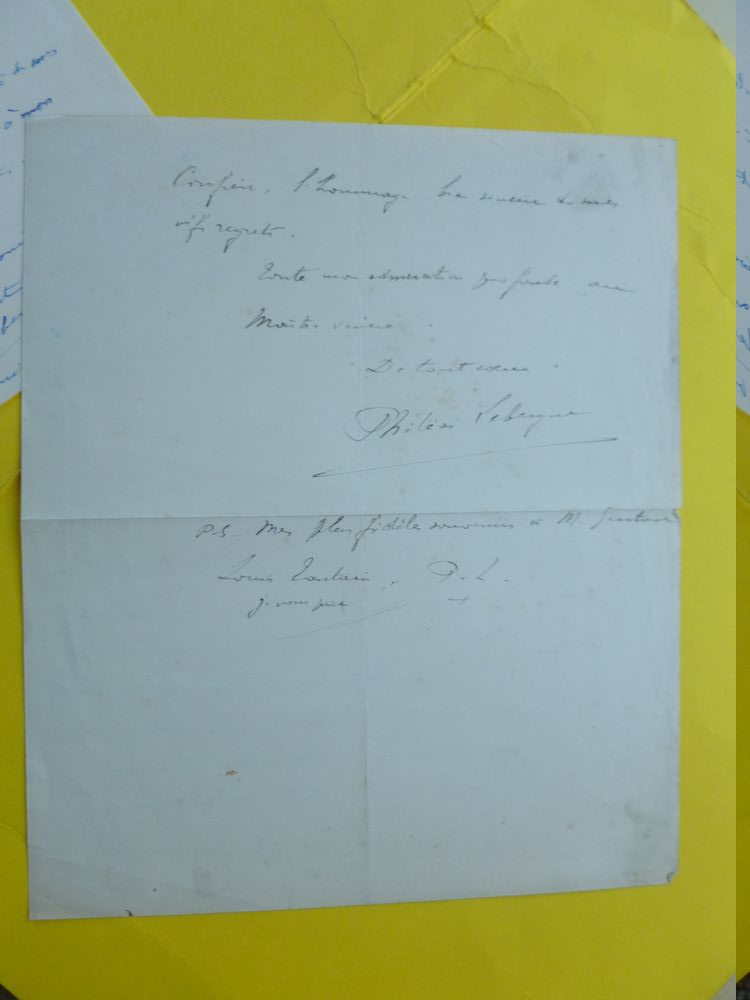 Confrère, l'hommage bien sincère de mes
vifs regrets.
Toute mon admiration profonde au
Maître vénéré.
De tout cœur.
Philéas Lebesgue
P.S. Mes plus fidèles souvenirs à M. Gustave
Louis Tautain, P.L.
je vous prie
à mon